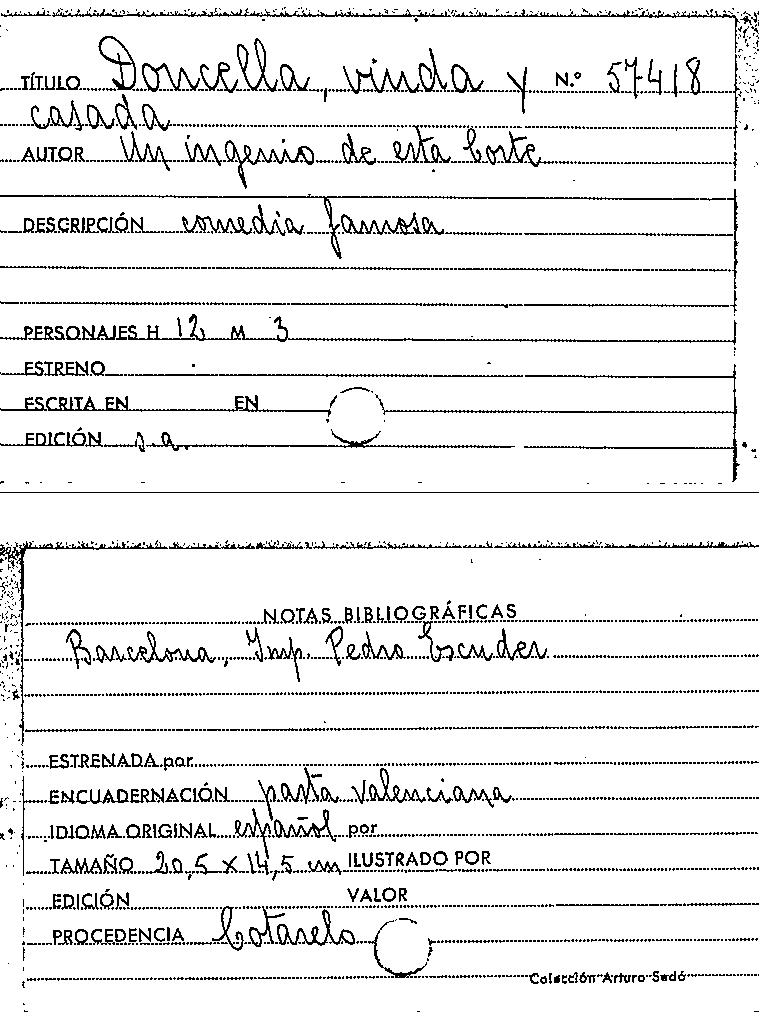 TÍTULO Doncella, viuda y N.º 57418
casada
AUTOR Un ingenio de esta Corte
DESCRIPCIÓN comedia famosa
PERSONAJES H 12 M 3
ESTRENO
ESCRITA EN EN
EDICIÓN s.a.
NOTAS BIBLIOGRÁFICAS
Barcelona, Imp. Pedro Escuder
ESTRENADA por
ENCUADERNACIÓN pasta valenciana
IDIOMA ORIGINAL español por
TAMAÑO 20,5 X 14,5 cm ILUSTRADO POR
EDICIÓN VALOR
PROCEDENCIA Cotarelo
Colección Arturo Sedó